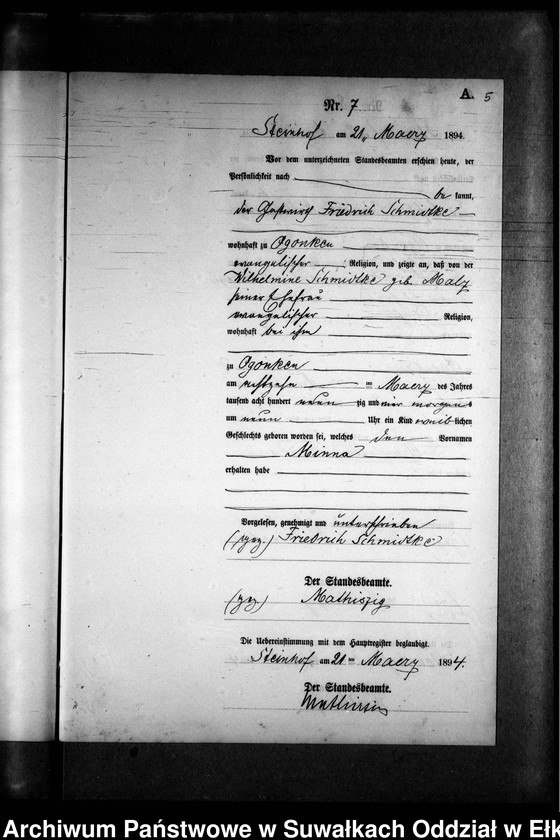 A. 5
Nr. 7
Steinhof am 21. Maerz 1894.
Vor dem unterzeichneten Standesbeamten erschien heute, der
Persönlichkeit nach
be kannt,
der Gastwirth Friedrich Schmidtke
wohnhaft zu Ogonken
evangelischer Religion, und zeigte an, daß von der
Wilhelmine Schmidtke geb. Malz
seiner Ehefrau
evangelischer Religion,
wohnhaft bei ihm
zu Ogonken
am achtzehn im Maerz des Jahres
tausend acht hundert neun zig und vier morgens
um neun Uhr ein Kind weib lichen
Geschlechts geboren worden sei, welches den Vornamen
Minna
erhalten habe
Vorgelesen, genehmigt und unterschrieben
(gez.) Friedrich Schmidtke
Der Standesbeamte.
(gez.) Mathiszig
Die Uebereinstimmung mit dem Hauptregister beglaubigt.
Steinhof am 21 ten Maerz 1894.
Der Standesbeamte.
Archiwum Państwowe w Suwałkach Oddział w Ełk